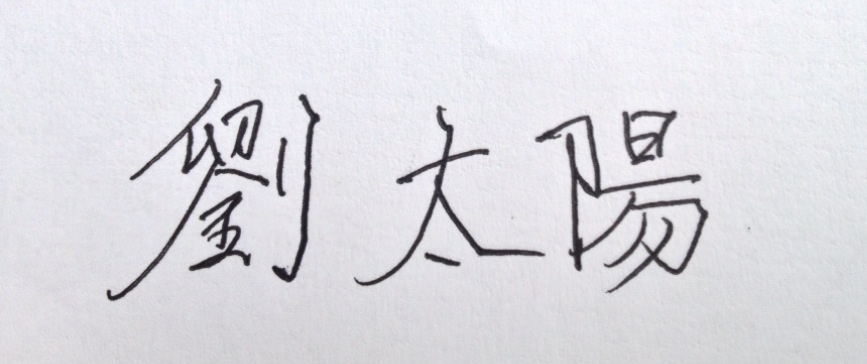 劉太陽